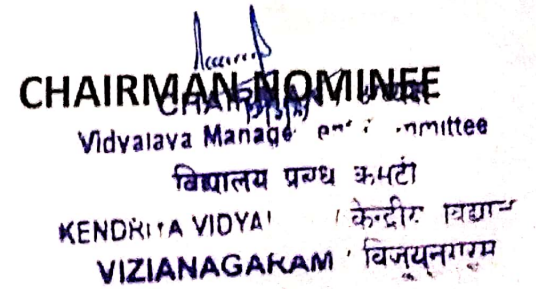 CHAIRMAN NOMINEE
CHAIRMAN
Vidyalaya Management Committee
विद्यालय प्रबन्ध कमेटी
KENDRIYA VIDYA केन्द्रीय विद्यालय
VIZIANAGARAM विजयनगरम